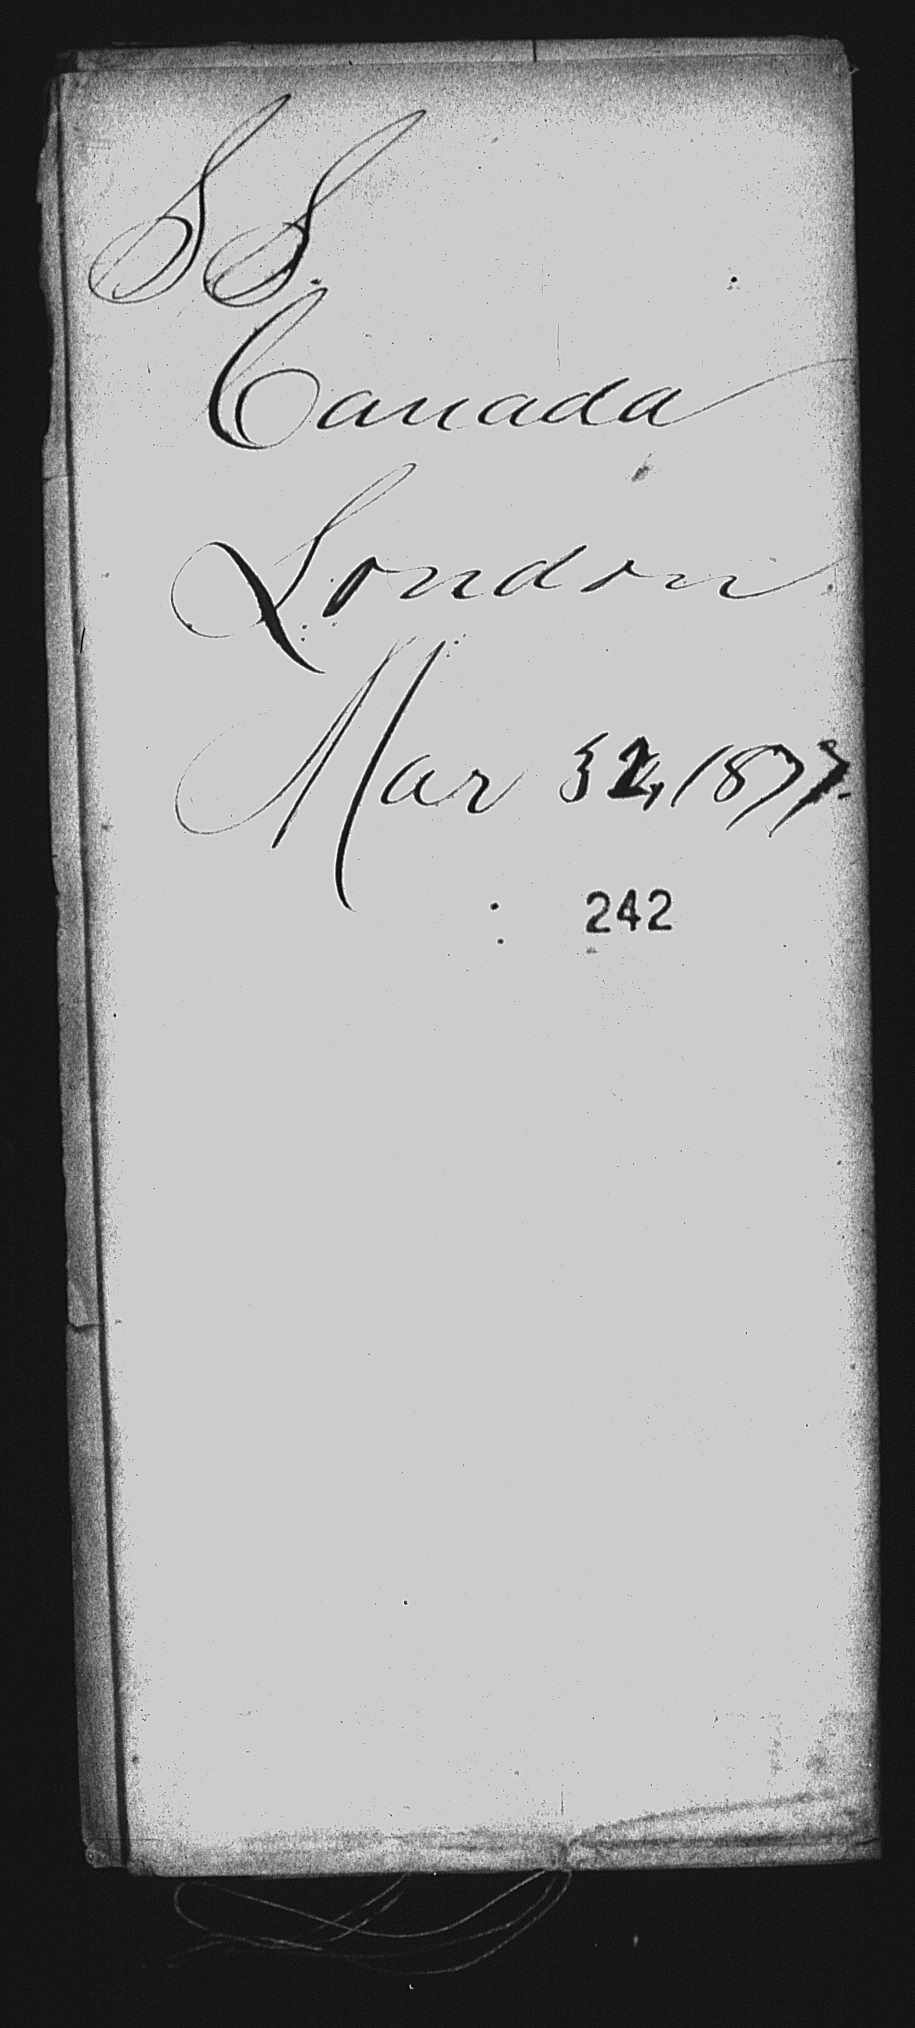 SS.
Canada
London
Mar 31, 1877.
242